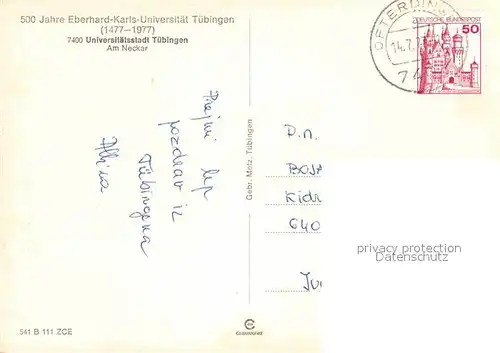 500 Jahre Eberhard-Karls-Universität Tübingen
(1477—1977)
7400 Universitätsstadt Tübingen
Am Neckar
Prejmi lep
pozdrav iz
Tübingena
Gebr. Metz, Tübingen
OFTERDIN
14.7.
74
DEUTSCHE BUNDESPOST
50
P.n.
BOJA
Kidr
640
privacy protection
Datenschutz
Ju
541 B 111 ZCE